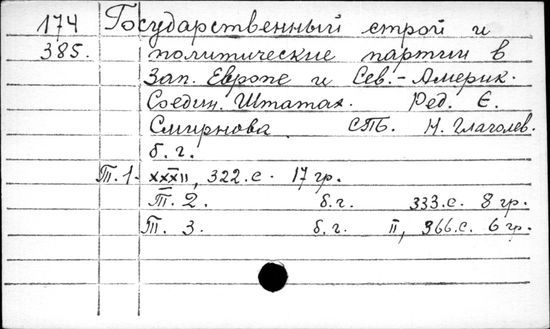 174 Государственный строй и
385. политические партии в
Зап. Европе и Сев.-Америк.
Соедин. Штатах. Ред. Е.
Смирнова. СПБ. Н. Глаголев.
б. г.
Т. 1. XXXII, 322.с. 17 гр.
Т. 2. б. г. 333.с. 8 гр.
Т. 3. б. г. II, 366.с. 6 гр.